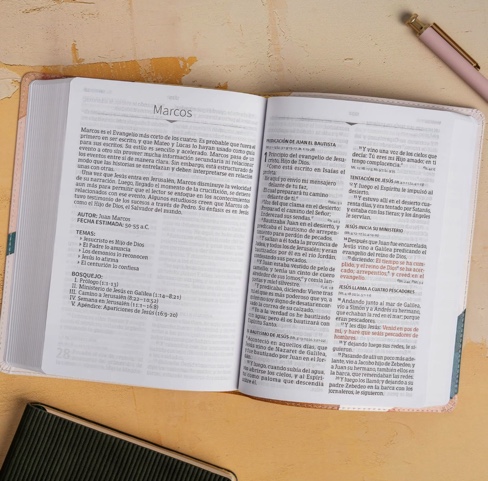 Marcos
Marcos es el Evangelio más corto de los cuatro. Es probable que fuera el
primero en ser escrito, y que Mateo y Lucas lo hayan usado como guía
para sus escritos. Su estilo es sencillo y acelerado. Marcos pasa de un
evento a otro sin proveer mucha información secundaria ni relacionar
los eventos entre sí de manera clara. Sin embargo, está estructurado de
modo que las historias se entretejen y deben interpretarse en relación
unas con otras.
Una vez que Jesús entra en Jerusalén, Marcos disminuye la velocidad
de su narración. Luego, llegado el momento de la crucifixión, se detiene
aún más para permitir al lector se enfoque en los acontecimientos
relacionados con ese evento. Algunos estudiosos creen que Marcos
tuvo testimonio de los sucesos a través de Pedro. Su énfasis es en Jesús
como el Hijo de Dios, el Salvador del mundo.
AUTOR: Juan Marcos
FECHA ESTIMADA: 50-55 a.C.
TEMAS:
Jesucristo es Hijo de Dios
El Padre lo anuncia
Los demonios lo reconocen
Jesús lo afirma
El centurión lo confiesa
BOSQUEJO:
I. Prólogo (1:1-13)
II. Ministerio de Jesús en Galilea (1:14-8:21)
III. Camino a Jerusalén (8:22-10:52)
IV. Semana en Jerusalén (11:1-16:8)
V. Apéndice: Apariciones de Jesús (16:9-20)
PREDICACIÓN DE JUAN EL BAUTISTA
1 Principio del evangelio de Jesucristo,
Hijo de Dios.
Como está escrito en Isaías el
profeta:
aquí yo envío mi mensajero
delante de tu faz,
cual preparará tu camino
delante de ti.
Voz del que clama en el desierto:
Preparad el camino del Señor;
Enderezad sus sendas.
Bautizaba Juan en el desierto, y
predicaba el bautismo de arrepentimiento
para perdón de pecados.
Y salían a él toda la provincia de
Judea, y todos los de Jerusalén; y eran
bautizados por él en el río Jordán,
confesando sus pecados.
Y Juan estaba vestido de pelo de
camello, y tenía un cinto de cuero
alrededor de sus lomos; y comía langostas
y miel silvestre.
Y predicaba, diciendo: Viene tras
mí el que es más poderoso que yo, a
quien no soy digno de desatar encorvado
la correa de su calzado.
Yo a la verdad os he bautizado
con agua; pero él os bautizará con
Espíritu Santo.
EL BAUTISMO DE JESÚS
Aconteció en aquellos días, que
Jesús vino de Nazaret de Galilea,
y fue bautizado por Juan en el Jordán.
Y luego, cuando subía del agua,
vio abrirse los cielos, y al Espíritu
como paloma que descendía
sobre él.
Y vino una voz de los cielos que
decía: Tú eres mi Hijo amado; en ti
tengo complacencia.
TENTACIÓN DE JESÚS
Y luego el Espíritu le impulsó al
desierto.
Y estuvo allí en el desierto cuarenta
días, y era tentado por Satanás,
y estaba con las fieras; y los ángeles
le servían.
JESÚS INICIA SU MINISTERIO
Después que Juan fue encarcelado,
Jesús vino a Galilea predicando el
evangelio del reino de Dios,
diciendo: El tiempo se ha cumplido,
y el reino de Dios se ha acercado;
arrepentíos, y creed en el
evangelio.
JESÚS LLAMA A CUATRO PESCADORES
Andando junto al mar de Galilea,
vio a Simón y a Andrés su hermano,
que echaban la red en el mar; porque
eran pescadores.
Y les dijo Jesús: Venid en pos de
mí, y haré que seáis pescadores de
hombres.
Y dejando luego sus redes, le siguieron.
Pasando de allí un poco más adelante,
vio a Jacobo hijo de Zebedeo, y a
Juan su hermano, también ellos en
la barca, que remendaban las redes.
Y luego los llamó; y dejando a su
padre Zebedeo en la barca con los
jornaleros, le siguieron.